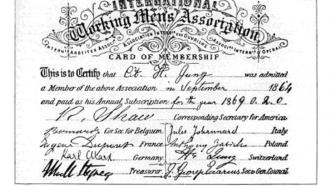 INTERNATIONAL
Working Men's Association
CARD OF MEMBERSHIP
This is to Certify that Cit. H. Jung was admitted
a Member of the above Association in September 1864
and paid as his Annual Subscription for the year 1869 0.2.0
R. Shaw Corresponding Secretary for America
Bernard Cor. Sec. for Belgium Jules Johannard Italy
Eugène Dupont France Anthony Zabicki Poland
Karl Marx Germany H. Jung Switzerland
Treasurer J. George Eccarius Sec. Gen. Council